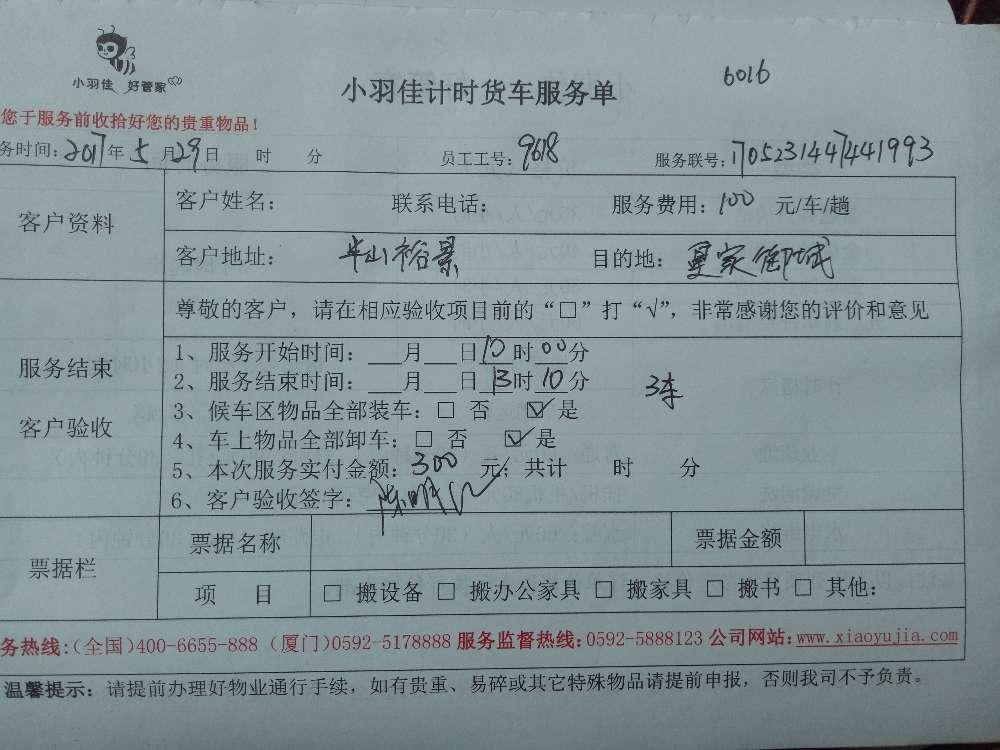 小羽佳 好管家
小羽佳计时货车服务单
6016
您于服务前收拾好您的贵重物品！
务时间：2017年5月29日 时 分 员工工号：9618 服务联号：170523144741993
客户资料
客户姓名： 联系电话： 服务费用：100 元/车/趟
客户地址： 半山裕景 目的地： 皇家御城
尊敬的客户，请在相应验收项目前的“□”打“√”，非常感谢您的评价和意见
服务结束
客户验收
1、服务开始时间：___月___日10时00分
2、服务结束时间：___月___日13时10分
3车
3、候车区物品全部装车：□ 否 ☑ 是
4、车上物品全部卸车：□ 否 ☑ 是
5、本次服务实付金额：300 元；共计 时 分
6、客户验收签字：
票据栏
票据名称 票据金额
项 目 □ 搬设备 □ 搬办公家具 □ 搬家具 □ 搬书 □ 其他：
务热线:(全国)400-6655-888 (厦门)0592-5178888 服务监督热线:0592-5888123 公司网站:www.xiaoyujia.com
温馨提示：请提前办理好物业通行手续，如有贵重、易碎或其它特殊物品请提前申报，否则我司不予负责。